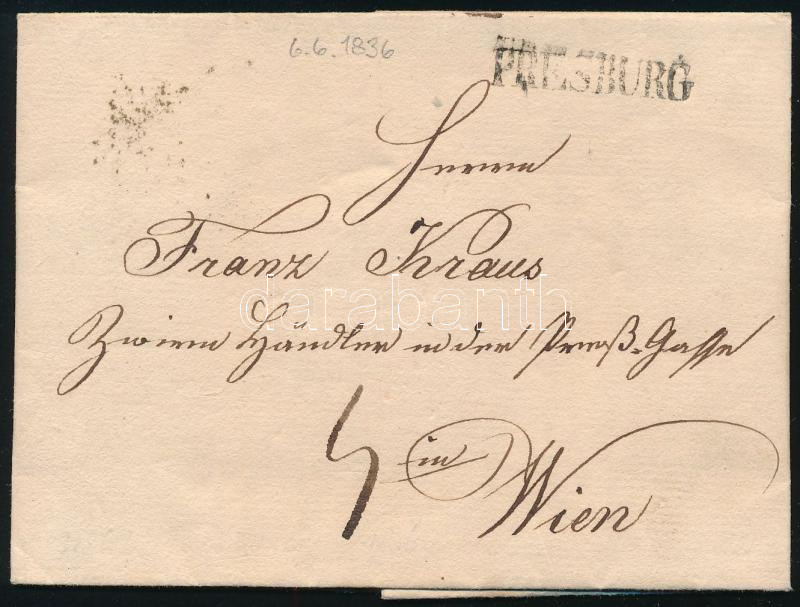 6.6.1836
PRESBURG
Herrn
Franz Kraus
Zwirn Händler in der Preß-Gasse
in
Wien
darabanth